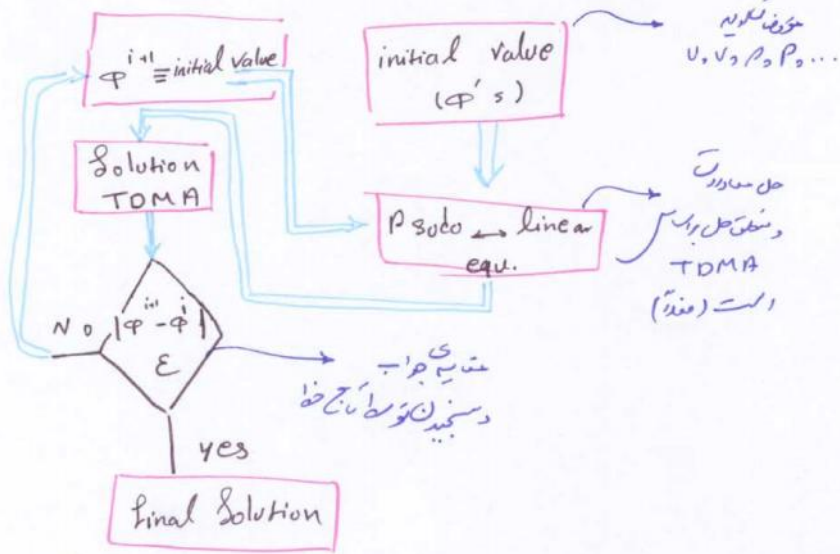 φ^{i+1} ≡ initial value
initial value
(φ's)
U, V, ρ, P, ...
Solution
TDMA
Psudo ↔ linear
equ.
حل معادلات
و منطق حل براساس
TDMA
است (مثلاً)
No
|φ^{i+1} - φ^i|
ε
مقایسه‌ی جواب
yes
Final Solution